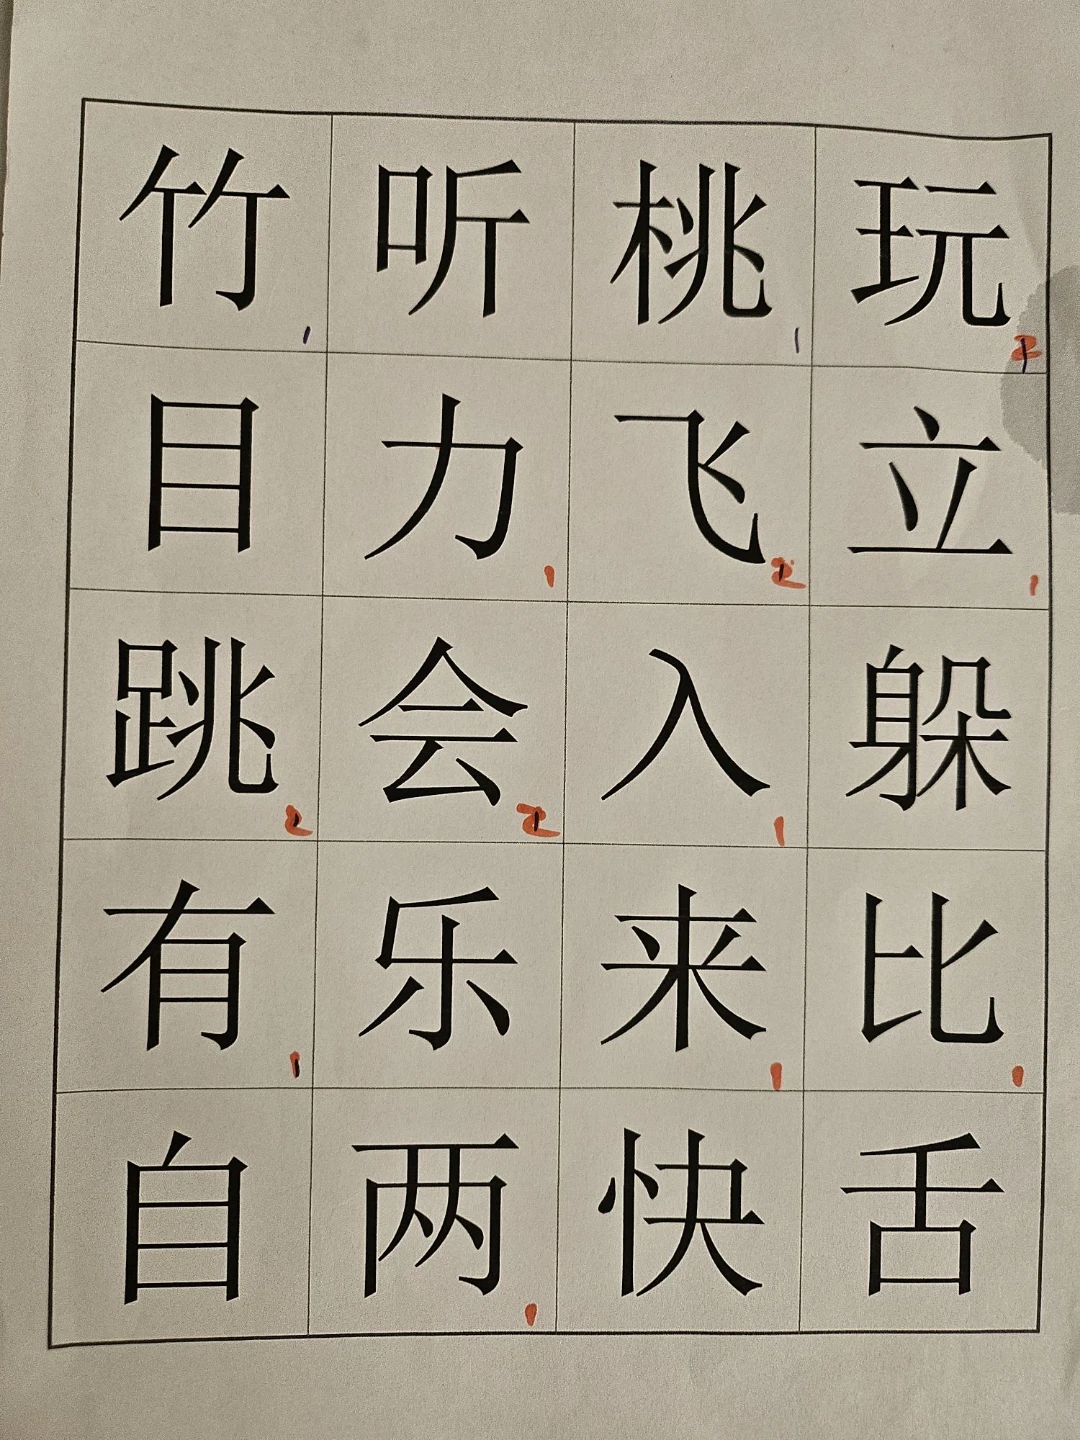 竹 听 桃 玩
1 1 2
目 力 飞 立
1 2 1
跳 会 入 躲
2 2 1
有 乐 来 比
1 1 1
自 两 快 舌
1